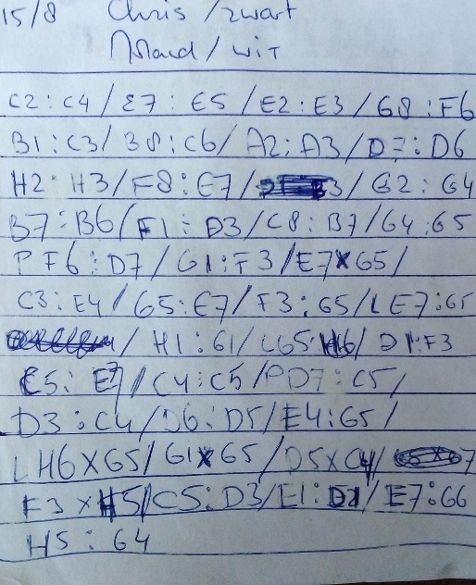 15/8 Chris / zwart
/ wit
C2 : C4 / E7 : E5 / E2 : E3 / G8 : F6
B1 : C3 / B8 : C6 / A2 : A3 / D7 : D6
H2 : H3 / F8 : E7 / G2 : G4
B7 : B6 / F1 : D3 / C8 : B7 / G4 : G5
P F6 : D7 / G1 : F3 / E7 X G5 /
C3 : E4 / G5 : E7 / F3 : G5 / L E7 : G5
/ H1 : G1 / LG5 H6 / D1 : F3
E7 / C4 : C5 / PD7 : C5 /
D3 : C4 / D6 : D5 / E4 : G5 /
LH6 X G5 / G1 X G5 / D5 X C4 /
F3 X H5 / C5 : D3 / E1 : / E7 : G6
H5 : G4